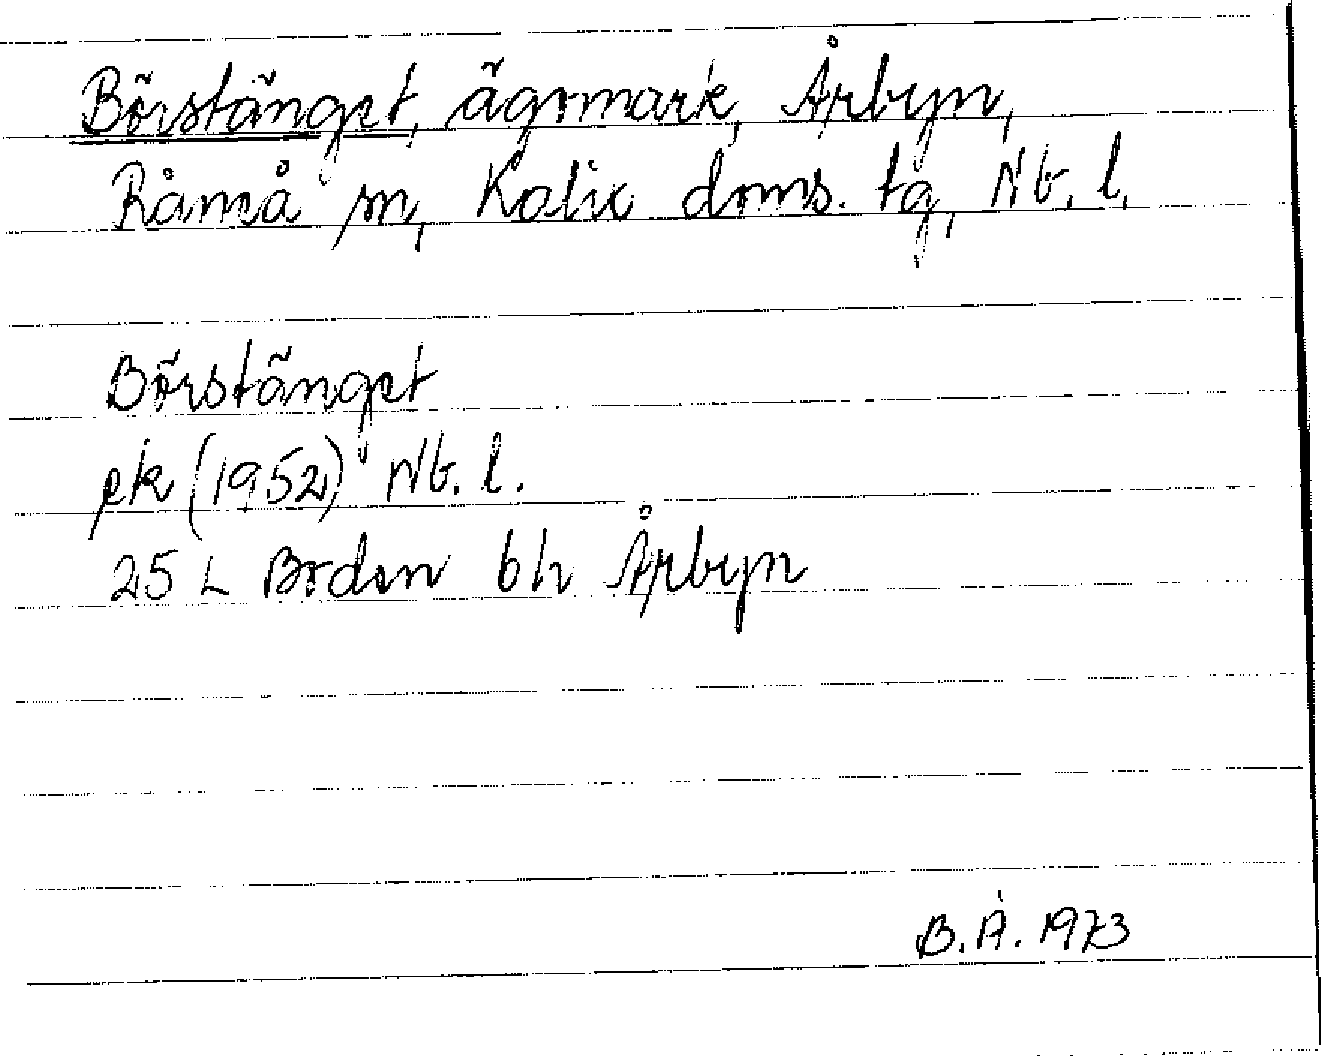 Börstänget, ägomark, Årbyn,
Råneå sn, Kalix doms. tg, Nb. l.
Börstänget
ek (1952) Nb. l.
25 L Boden bh Årbyn
B.Å. 1973